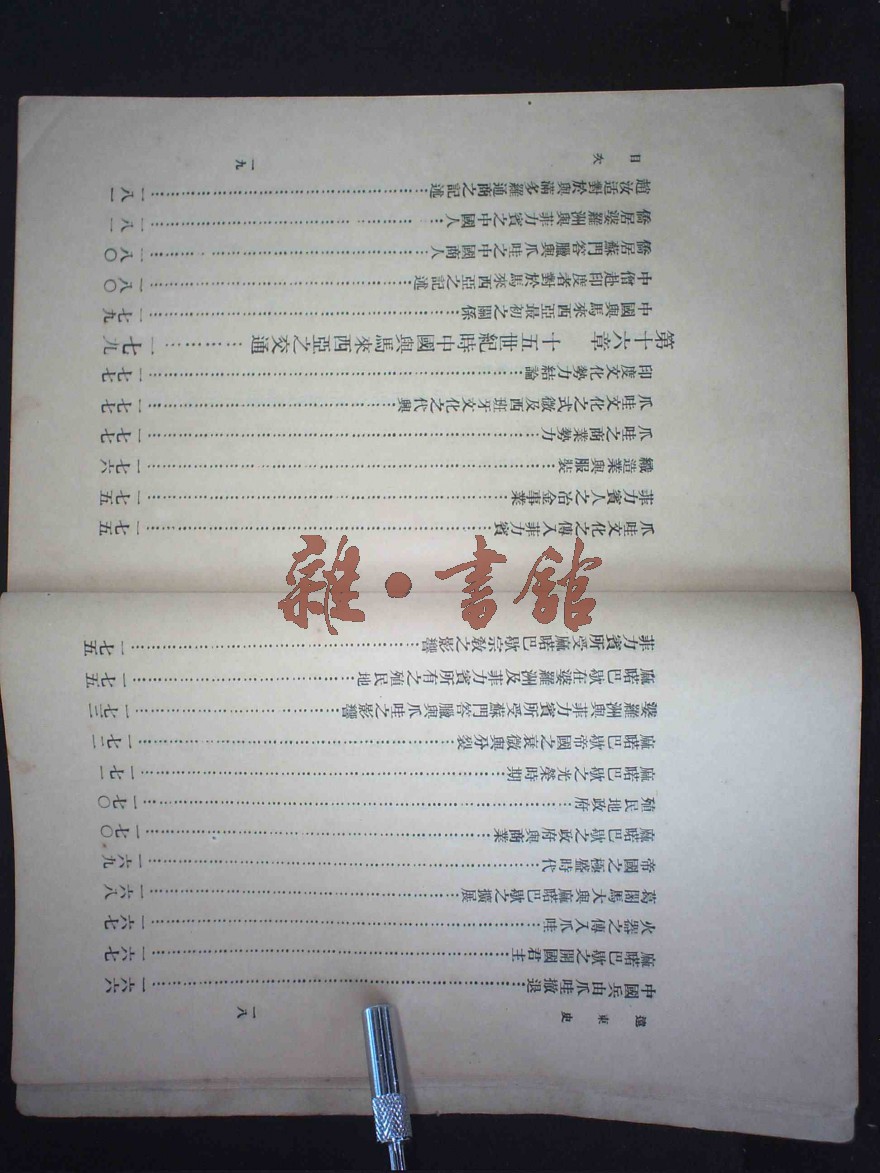 遠東史
一八
中國兵由爪哇撤退……一六六
麻喏巴歇之開國君主……一六七
火器之傳入爪哇……一六七
葛闍馬大與麻喏巴歇之擴展……一六八
帝國之極盛時代……一六九
麻喏巴歇之政府與商業……一七〇
殖民地政府……一七〇
麻喏巴歇之光榮時期……一七一
麻喏巴歇帝國之衰微與分裂……一七二
婆羅洲與菲力賓所受蘇門答臘與爪哇之影響……一七三
麻喏巴歇在婆羅洲及菲力賓所有之殖民地……一七五
菲力賓所受麻喏巴歇宗敎之影響……一七五
雜·書館
爪哇文化之傳入菲力賓……一七五
菲力賓人之冶金事業……一七五
織造業與服裝……一七六
爪哇之商業勢力……一七七
爪哇文化之式微及西班牙文化之代興……一七七
印度文化勢力結論……一七七
第十六章 十五世紀時中國與馬來西亞之交通……一七九
中國與馬來西亞最初之關係……一七九
中僧赴印度者對於馬來西亞之記述……一八〇
僑居蘇門答臘與爪哇之中國商人……一八〇
僑居婆羅洲與菲力賓之中國人……一八一
趙汝适對於與滿多羅通商之記述……一八一
目次
一九